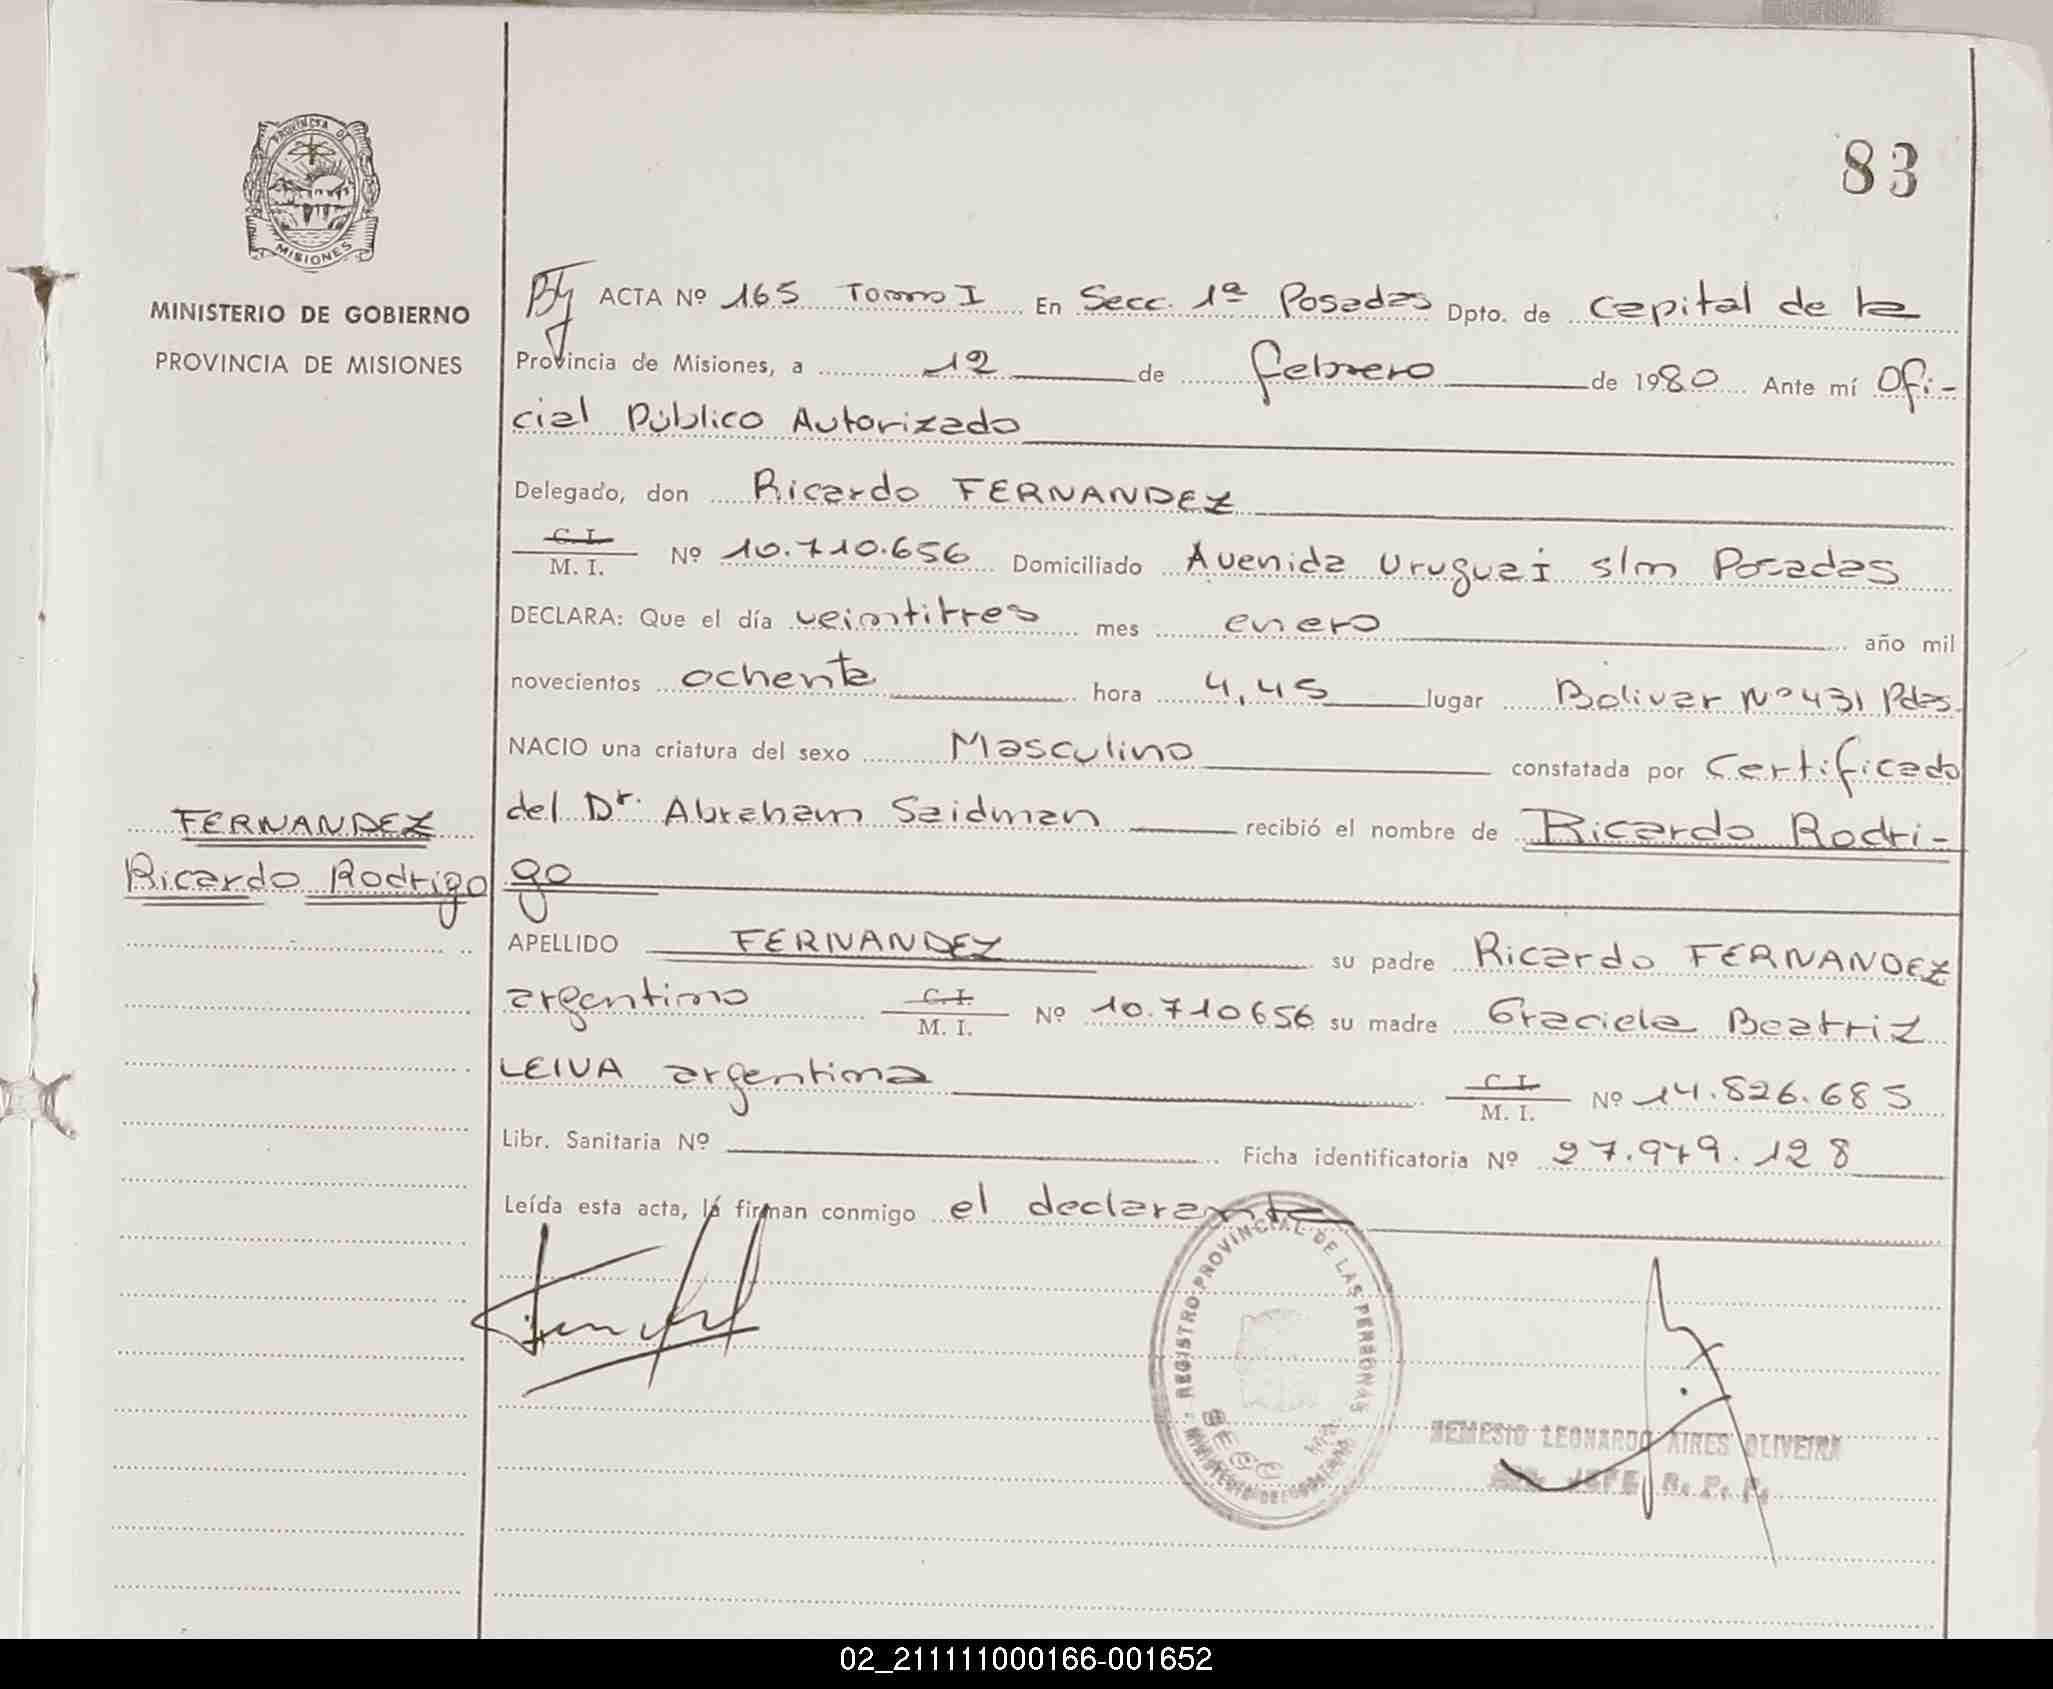 83
PROVINCIA DE
MISIONES
MINISTERIO DE GOBIERNO
PROVINCIA DE MISIONES
ACTA Nº 165 Tomo I En Secc. 1ª Posadas Dpto. de Capital de la
Provincia de Misiones, a 12 de febrero de 1980 Ante mí Ofi-
cial Público Autorizado
Delegado, don Ricardo FERNANDEZ
C. I.
M. I. Nº 10.710.656 Domiciliado Avenida Uruguai s/n Posadas
DECLARA: Que el día veintitres mes enero año mil
novecientos ochenta hora 4,45 lugar Bolivar Nº 431 Pdas.
NACIO una criatura del sexo Masculino constatada por Certificado
del Dr. Abraham Saidman recibió el nombre de Ricardo Rodri-
go
FERNANDEZ
Ricardo Rodrigo
APELLIDO FERNANDEZ su padre Ricardo FERNANDEZ
argentino C. I.
M. I. Nº 10.710656 su madre Graciela Beatriz
LEIVA argentina C. I.
M. I. Nº 14.826.685
Libr. Sanitaria Nº Ficha identificatoria Nº 27.979.128
Leída esta acta, la firman conmigo el declarante
REGISTRO PROVINCIAL DE LAS PERSONAS
MINISTERIO DE GOBIERNO
SECC
NEMESIO LEONARDO AIRES OLIVEIRA
JEFE R. P. P.
02_211111000166-001652